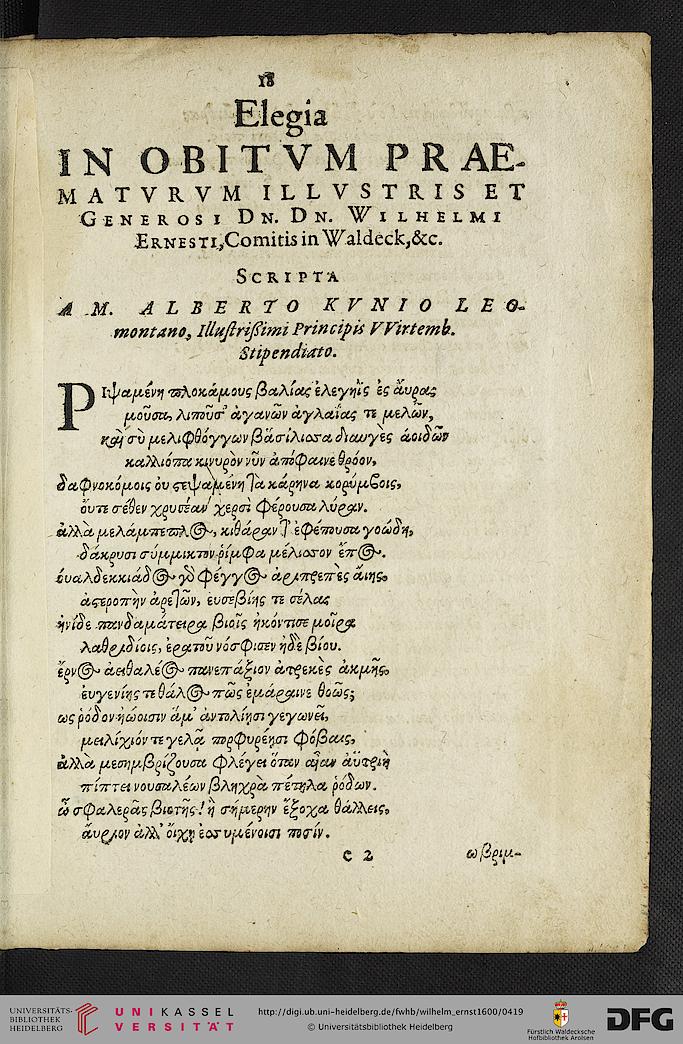 18
Elegia
IN OBITVM PRAE-
MATVRVM ILLVSTRIS ET
GENEROSI DN. DN. WILHELMI
ERNESTI, Comitis in Waldeck, &c.
SCRIPTA
A M. ALBERTO KVNIO LEO-
montano, Illustrißimi Principis VVirtemb.
Stipendiato.
ΡΙψαμένη πλοκάμους βαλίας ἐλεγηῒς ἐς ἄυρας
μοῦσα, λιποῦσ' ἀγανῶν ἀγλαΐας τε μελῶν,
καὶ σὺ μελιφθόγγων βάσίλιασα διαυγὲς ἀοιδῶν
καλλιόπα κινυρὸν νῦν ἀπόφαινε θρόον,
δαφνοκόμοις ὀυ στεψαμένη τὰ κάρηνα κορύμβοις,
ὄυτε σέθεν χρυσέαν χερσὶ φέρουσα λύραν.
ἀλλὰ μελάμπεπλος, κιθάραν τ' ἐφέπουσα γοώδη,
δάκρυσι σύμμικτον ῥίμφα μέλιασον ἔπος.
ἐυαλδεκκιάδος γὸ φέγγος ἀριπρεπὲς ἄιης
ἀστεροπὴν ἀρετῶν, ευσεβίης τε σέλας
ἠνίδε πανδαμάτειρα βιοῖς ἠκόντισε μοῖρα
λαθριδίοις, ἐρατοῦ νόσφισεν ἠδὲ βίου.
ἔρνος ἀειθαλέος πανεπάξιον ἀτρεκὲς ἀκμῆς
ἐυγενίης τε θάλος πῶς ἐμάραινε θοῶς;
ως ῥόδον ἠώοισιν ἅμ' ἀντολίησι γεγωνεῖ,
μειλίχιόν τε γελᾷ πορφυρέῃσι φόβαις,
ἀλλὰ μεσημβρίζουσα φλέγει ὅταν
πίπτει νουσαλέων βληχρὰ πέτηλα ῥόδων.
ὦ σφαλερᾶς βιοτῆς! ἢ σήμερην ἔξοχα θάλλεις,
ἄυριον ἀλλ' ὄιχῃ ἐσσυμένοισι ποσίν.
C 2 ωβριμ-
UNIVERSITÄTS-
BIBLIOTHEK
HEIDELBERG
UNIKASSEL
VERSITÄT
http://digi.ub.uni-heidelberg.de/fwhb/wilhelm_ernst1600/0419
© Universitätsbibliothek Heidelberg
Fürstlich Waldecksche
Hofbibliothek Arolsen
DFG